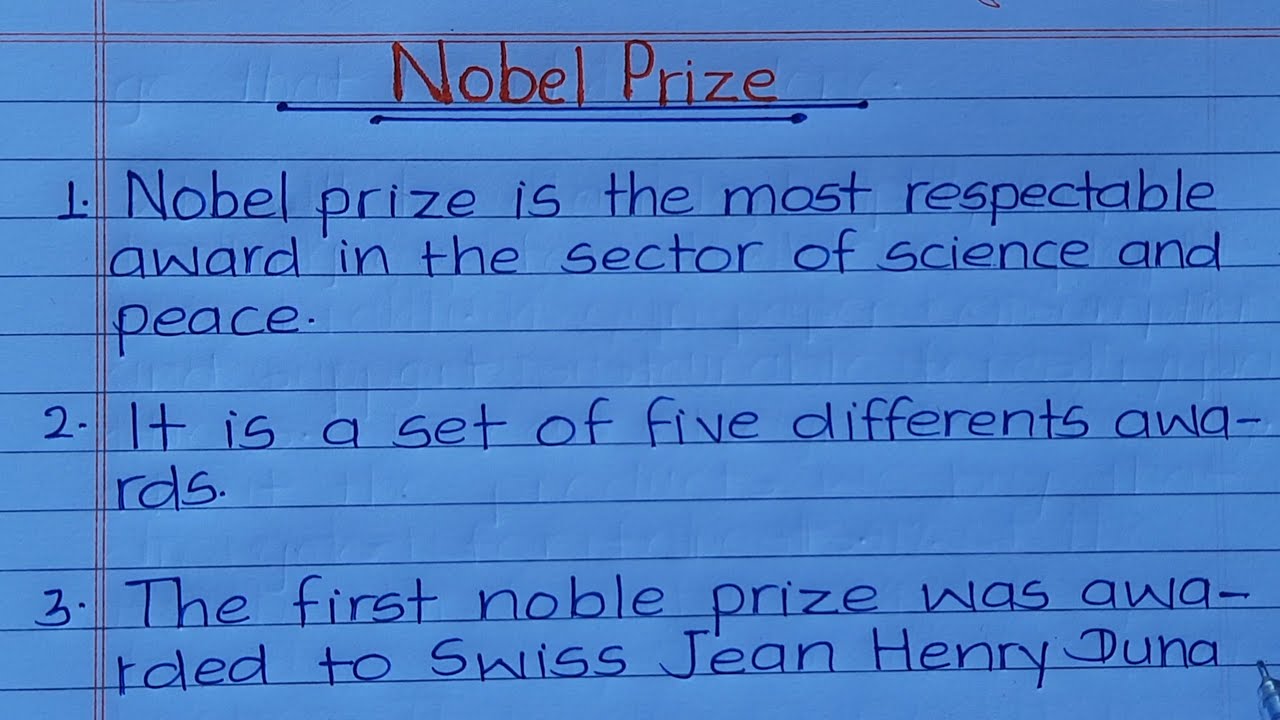 Nobel Prize
1. Nobel prize is the most respectable
award in the sector of science and
peace.
2. It is a set of five differents awa-
rds.
3. The first noble prize was awa-
rded to Swiss Jean Henry Duna